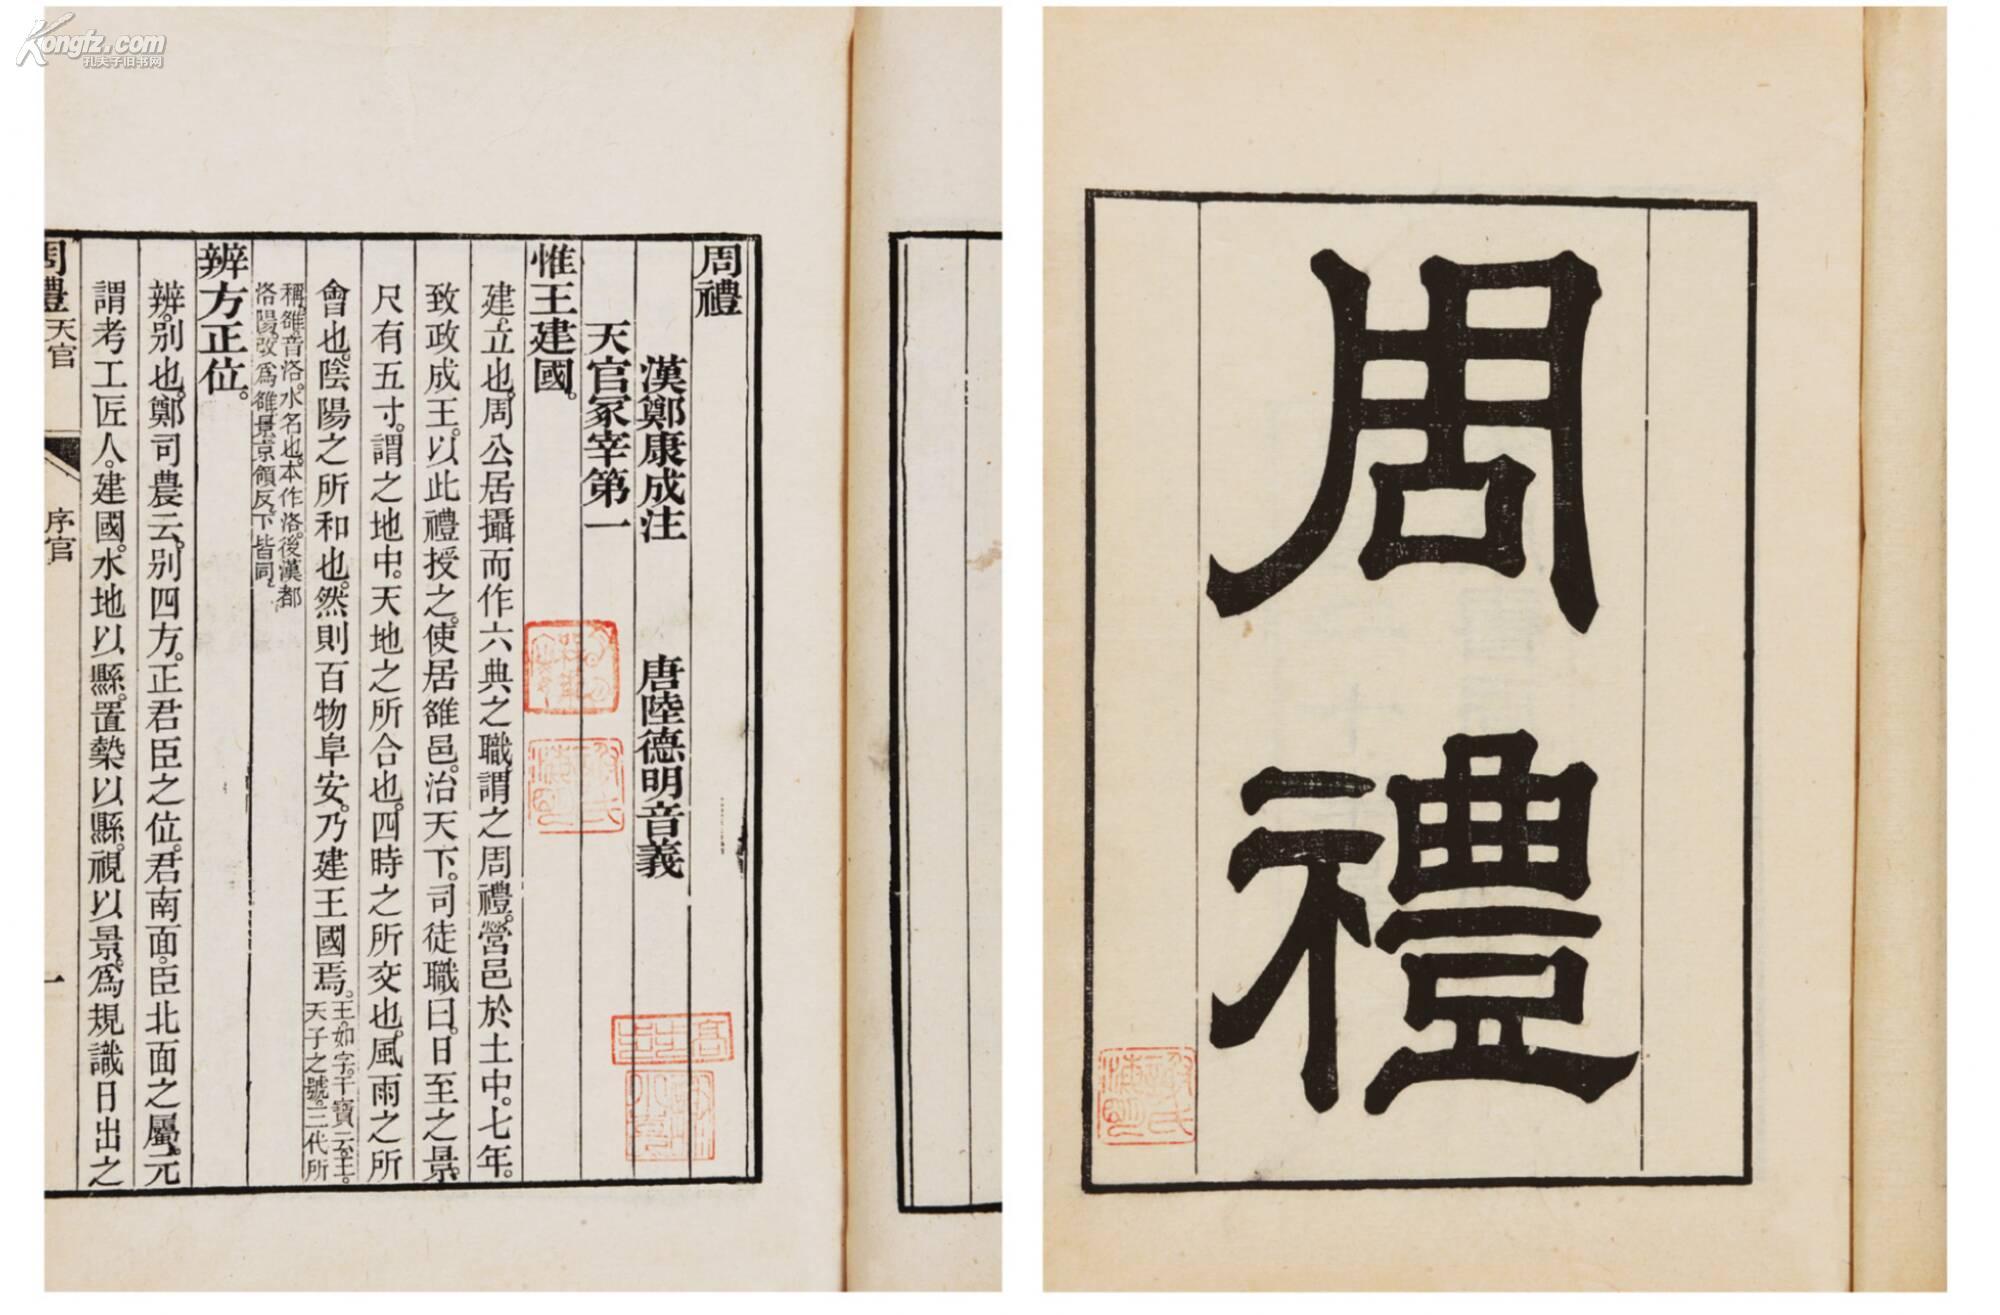 Kongfz.com
孔夫子旧书网
周禮
周禮
漢鄭康成注 唐陸德明音義
天官冢宰第一
惟王建國。
建。立也。周公居攝而作六典之職。謂之周禮。營邑於土中。七年。
致政成王。以此禮授之。使居雒邑。治天下。司徒職曰。日至之景。
尺有五寸。謂之地中。天地之所合也。四時之所交也。風雨之所
會也。陰陽之所和也。然則百物阜安。乃建王國焉。王。如字。干寶云。王。
天子之號。三代所
稱。雒。音洛。水名也。本作洛。後漢都
洛陽。改爲雒。景。京領反。下皆同。
辨方正位。
辨。别也。鄭司農云。别四方。正君臣之位。君南面。臣北面之屬。元
謂考工匠人。建國。水地以縣。置槷以縣。視以景。爲規識日出之
周禮 天官 序官 一